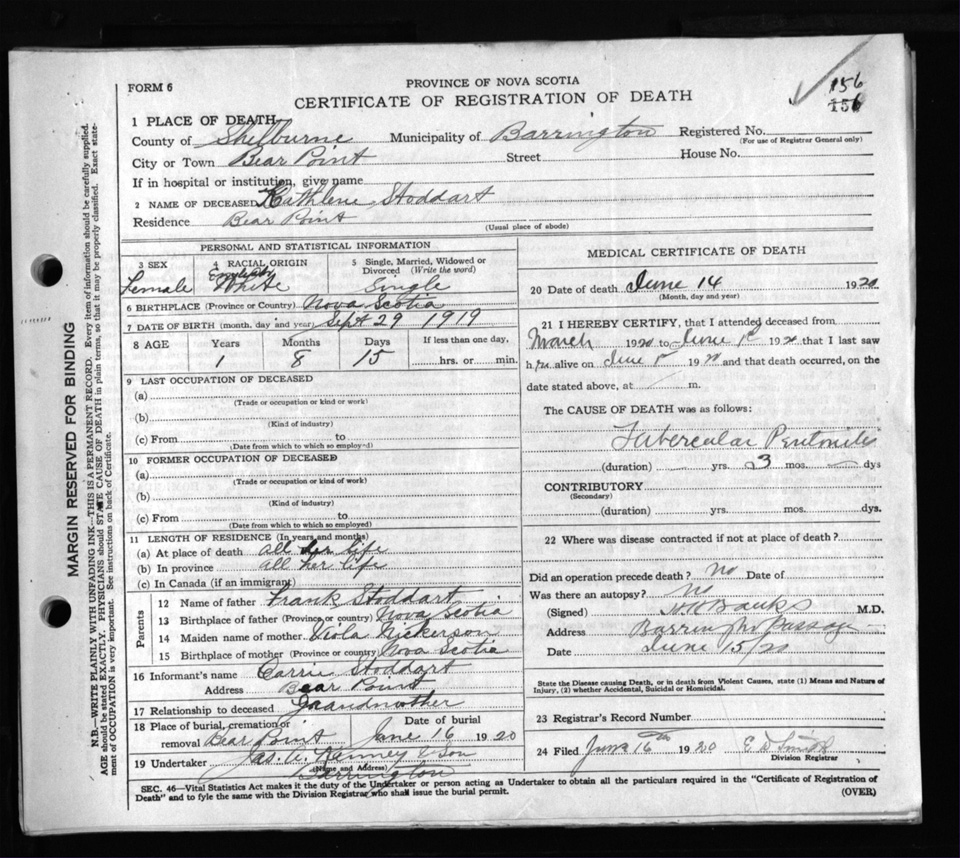 FORM 6
PROVINCE OF NOVA SCOTIA
CERTIFICATE OF REGISTRATION OF DEATH
156
156
1 PLACE OF DEATH
County of Shelburne Municipality of Barrington Registered No.
(For use of Registrar General only)
City or Town Bear Point Street House No.
If in hospital or institution, give name
2 NAME OF DECEASED Kathlene Stoddart
Residence Bear Point
(Usual place of abode)
PERSONAL AND STATISTICAL INFORMATION
3 SEX Female
4 RACIAL ORIGIN English White
5 Single, Married, Widowed or Divorced (Write the word) Single
6 BIRTHPLACE (Province or Country) Nova Scotia
7 DATE OF BIRTH (month, day and year) Sept 29 1919
8 AGE Years Months Days If less than one day,
1 8 15 hrs. or min.
9 LAST OCCUPATION OF DECEASED
(a)
(Trade or occupation or kind or work)
(b)
(Kind of industry)
(c) From to
(Date from which to which so employed)
10 FORMER OCCUPATION OF DECEASED
(a)
(Trade or occupation or kind of work)
(b)
(Kind of industry)
(c) From to
(Date from which to which so employed)
11 LENGTH OF RESIDENCE (In years and months)
(a) At place of death all her life
(b) In province all her life
(c) In Canada (if an immigrant)
Parents
12 Name of father Frank Stoddart
13 Birthplace of father (Province or country) Nova Scotia
14 Maiden name of mother Viola Nickerson
15 Birthplace of mother (Province or country) Nova Scotia
16 Informant's name Carrie Stoddart
Address Bear Point
17 Relationship to deceased Grandmother
18 Place of burial, cremation or removal Bear Point Date of burial June 16 1920
19 Undertaker Jas. A. & Son
(Name and Address)
Barrington
MEDICAL CERTIFICATE OF DEATH
20 Date of death June 14 1920
(Month, day and year)
21 I HEREBY CERTIFY, that I attended deceased from
March 1920 to June 1920 that I last saw
her alive on June 1920 and that death occurred, on the
date stated above, at m.
The CAUSE OF DEATH was as follows:
Tubercular Peritonitis
(duration) yrs. 3 mos. dys
CONTRIBUTORY
(Secondary)
(duration) yrs. mos. dys.
22 Where was disease contracted if not at place of death?
Did an operation precede death? No Date of
Was there an autopsy? No
(Signed) Banks M.D.
Address Barrington Passage
Date June 15/20
State the Disease causing Death, or in death from Violent Causes, state (1) Means and Nature of
Injury, (2) whether Accidental, Suicidal or Homicidal.
23 Registrar's Record Number
24 Filed June 16th 1920 E D Smith
Division Registrar
SEC. 46—Vital Statistics Act makes it the duty of the Undertaker or person acting as Undertaker to obtain all the particulars required in the "Certificate of Registration of
Death" and to fyle the same with the Division Registrar who shall issue the burial permit.
(OVER)
MARGIN RESERVED FOR BINDING
N.B.—WRITE PLAINLY WITH UNFADING INK—THIS IS A PERMANENT RECORD. Every item of information should be carefully supplied.
AGE should be stated EXACTLY. PHYSICIANS should STATE CAUSE OF DEATH in plain terms, so that it may be properly classified. Exact state-
ment of OCCUPATION is very important. See instructions on back of Certificate.